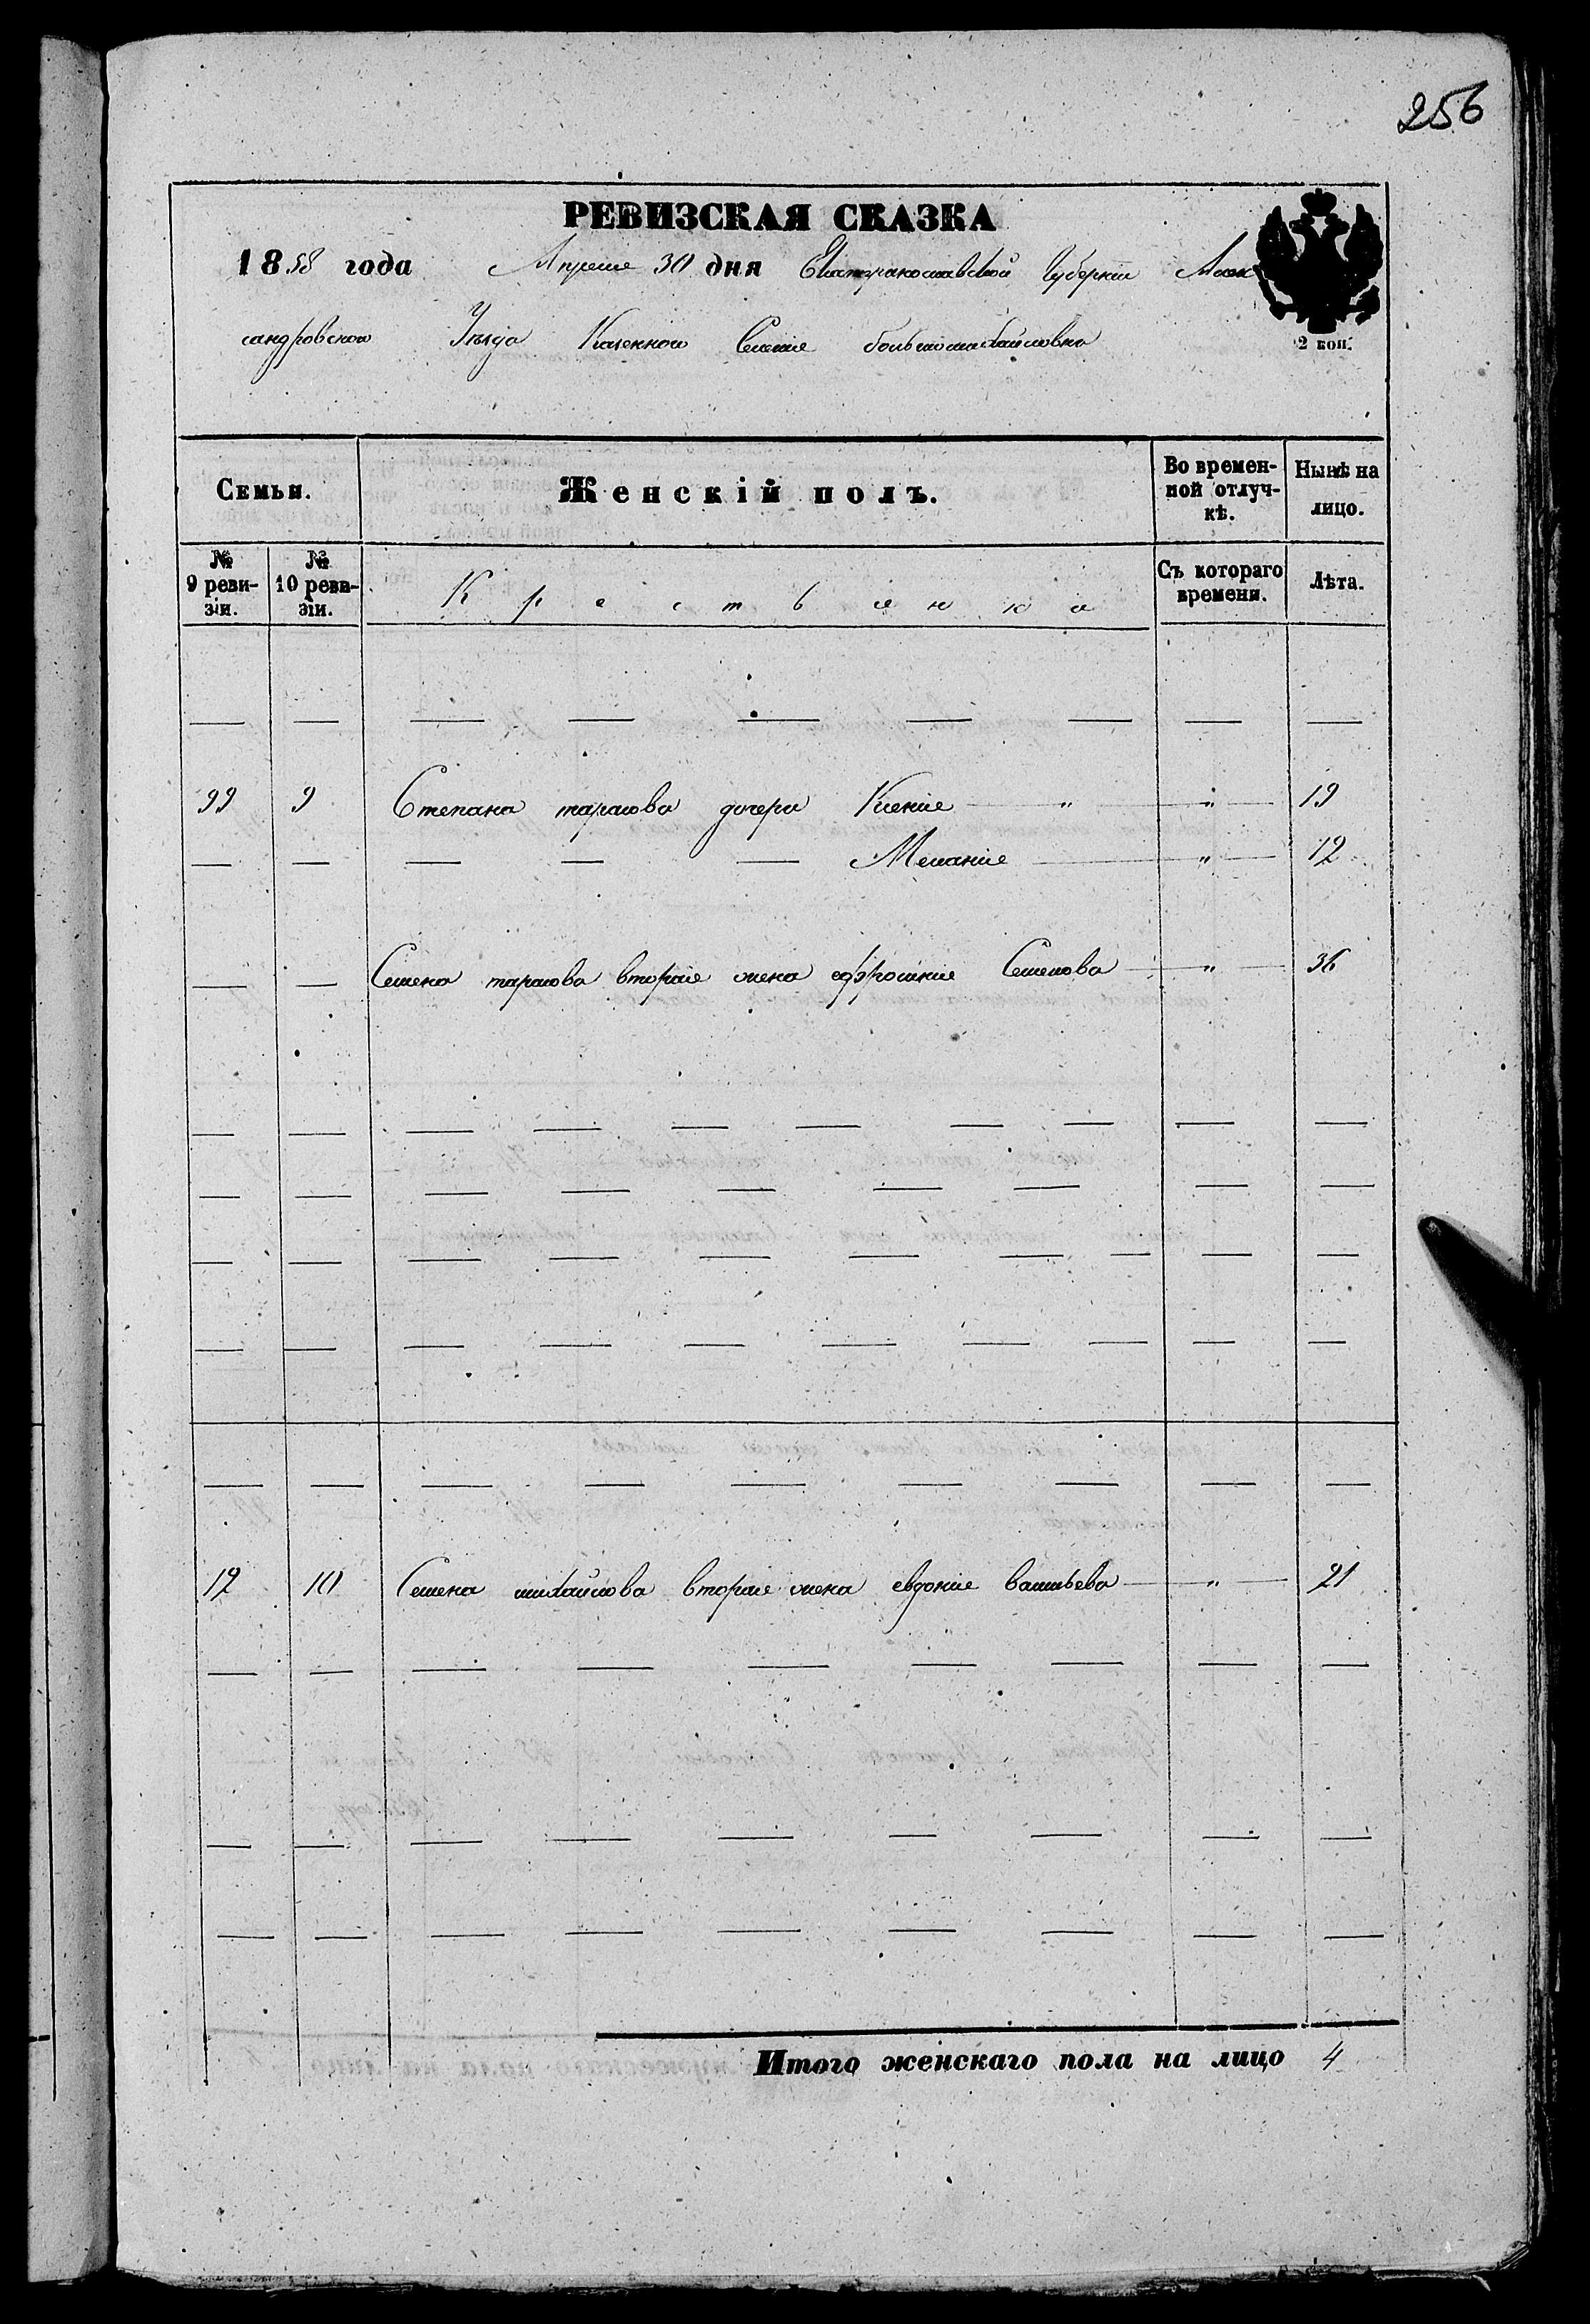 256
РЕВИЗСКАЯ СКАЗКА
1858 года Апреля 30 дня Екатеринославской Губернии Алек
сандровского Уезда Казенного Селения большомихайловки
2 коп.
Семьи. Женскій полъ. Во времен-ной отлуч-кѣ. Нынѣ на лицо.
№ 9 реви-зіи. № 10 реви-зіи. Крестьянка Съ котораго времени. Лѣта.
— — — — — — — — —
99 9 Степана тарасова дочери Ксения — " — " — 19
— — — — — Мелания — " — 12
— — Семена тарасова вторая жена ефросиния Семенова — " — 36
— — — — — — — — — —
— — — — — — — — —
— — — — — — — — — —
— — — — — — — — — —
— — — — — — — — —
12 10 Семена михайлова вторая жена евдокия васильева — " — 21
— — — — — — — — —
— — — — — — — — —
— — — — — — — — —
Итого женскаго пола на лицо 4